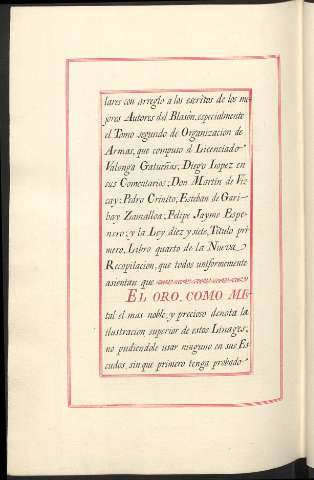 lares con arreglo a los escritos de los me-
jores Autores del Blasón, especialmente
el Tomo segundo de Organizacion de
Armas, que compuso el Licenciado
Valonga Gatueñas; Diego Lopez en
sus Comentarios; Don Martin de Viz-
cay; Pedro Crinito; Esteban de Gari-
bay Zamalloa; Felipe Jayme Espe-
nero; y la Ley diez y siete, Titulo pri-
mero, Libro quarto de la Nueva
Recopilacion, que todos uniformemente
asientan que
EL ORO, COMO ME-
tal el mas noble, y precioso denota la
ilustracion superior de estos Linages;
no pudiendole usar ninguno en sus Es-
cudos, sin que primero tenga probado